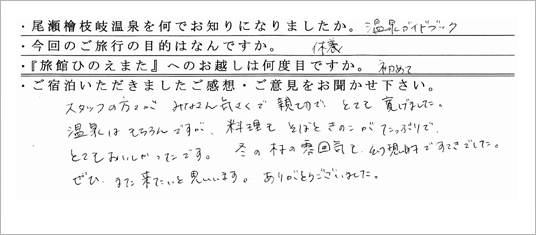 ・尾瀬檜枝岐温泉を何でお知りになりましたか。温泉ガイドブック
・今回のご旅行の目的はなんですか。 休養
・『旅館ひのえまた』へのお越しは何度目ですか。 初めて
・ご宿泊いただきましたご感想・ご意見をお聞かせ下さい。
スタッフの方々が みなさん気さくで 親切で、とても 寛げました。
温泉は もちろんですが、料理も そばときのこが たっぷりで、
とてもおいしかったです。 冬の村の雰囲気も 幻想的ですてきでした。
ぜひ また来たいと思います。 ありがとうございました。